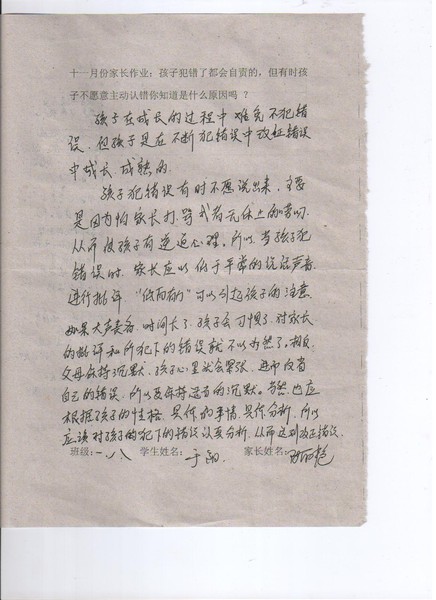 十一月份家长作业：孩子犯错了都会自责的，但有时孩
子不愿意主动认错你知道是什么原因吗？
孩子在成长的过程中难免不犯错
误，但孩子是在不断犯错误中改正错误
中成长，成熟的。
孩子犯错误有时不愿说出来，主要
是因为怕家长打骂或者无休止的唠叨，
从而使孩子有逆反心理。所以，当孩子犯
错误时，家长应以低于平常的说话声音
进行批评，"低而有力"可以引起孩子的注意
如果大声责备，时间长了，孩子会习惯了，对家长
的批评和所犯下的错误就不以为然了，相反
父母保持沉默，孩子心里就会紧张，进而反省
自己的错误，所以要保持适当的沉默。当然，也应
根据孩子的性格，具体的事情，具体分析，所以
应该对孩子的犯下的错误认真分析，从而达到改正错误。
班级：一、八 学生姓名：于 家长姓名：